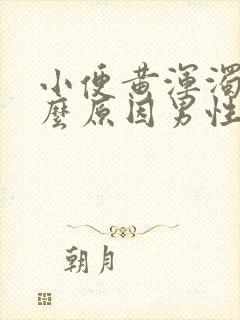 小便黄浑浊
麼原因男性
朝月